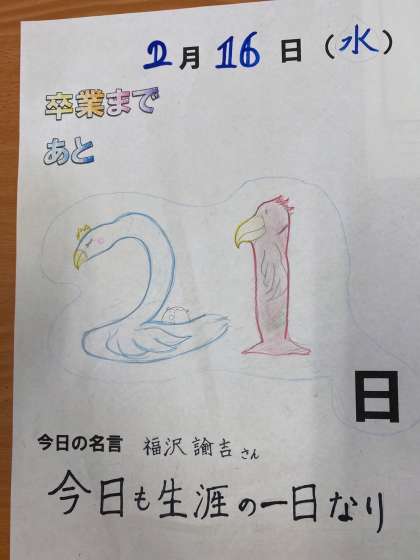 2月16日(水)
卒業まで
あと
21
日
今日の名言 福沢諭吉さん
今日も生涯の一日なり